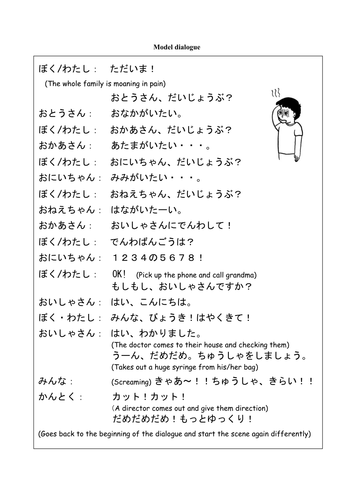 Model dialogue
ぼく/わたし： ただいま！
(The whole family is moaning in pain)
おとうさん、だいじょうぶ？
おとうさん： おなかがいたい。
ぼく/わたし： おかあさん、だいじょうぶ？
おかあさん： あたまがいたい・・・。
ぼく/わたし： おにいちゃん、だいじょうぶ？
おにいちゃん： みみがいたい・・・。
ぼく/わたし： おねえちゃん、だいじょうぶ？
おねえちゃん： はながいたーい。
おかあさん： おいしゃさんにでんわして！
ぼく/わたし： でんわばんごうは？
おにいちゃん： １２３４の５６７８！
ぼく/わたし： OK! (Pick up the phone and call grandma)
もしもし、おいしゃさんですか？
おいしゃさん： はい、こんにちは。
ぼく・わたし： みんな、びょうき！はやくきて！
おいしゃさん： はい、わかりました。
(The doctor comes to their house and checking them)
うーん、だめだめ。ちゅうしゃをしましょう。
(Takes out a huge syringe from his/her bag)
みんな： (Screaming) きゃあ～！！ちゅうしゃ、きらい！！
かんとく： カット！カット！
(A director comes out and give them direction)
だめだめだめ！もっとゆっくり！
(Goes back to the beginning of the dialogue and start the scene again differently)